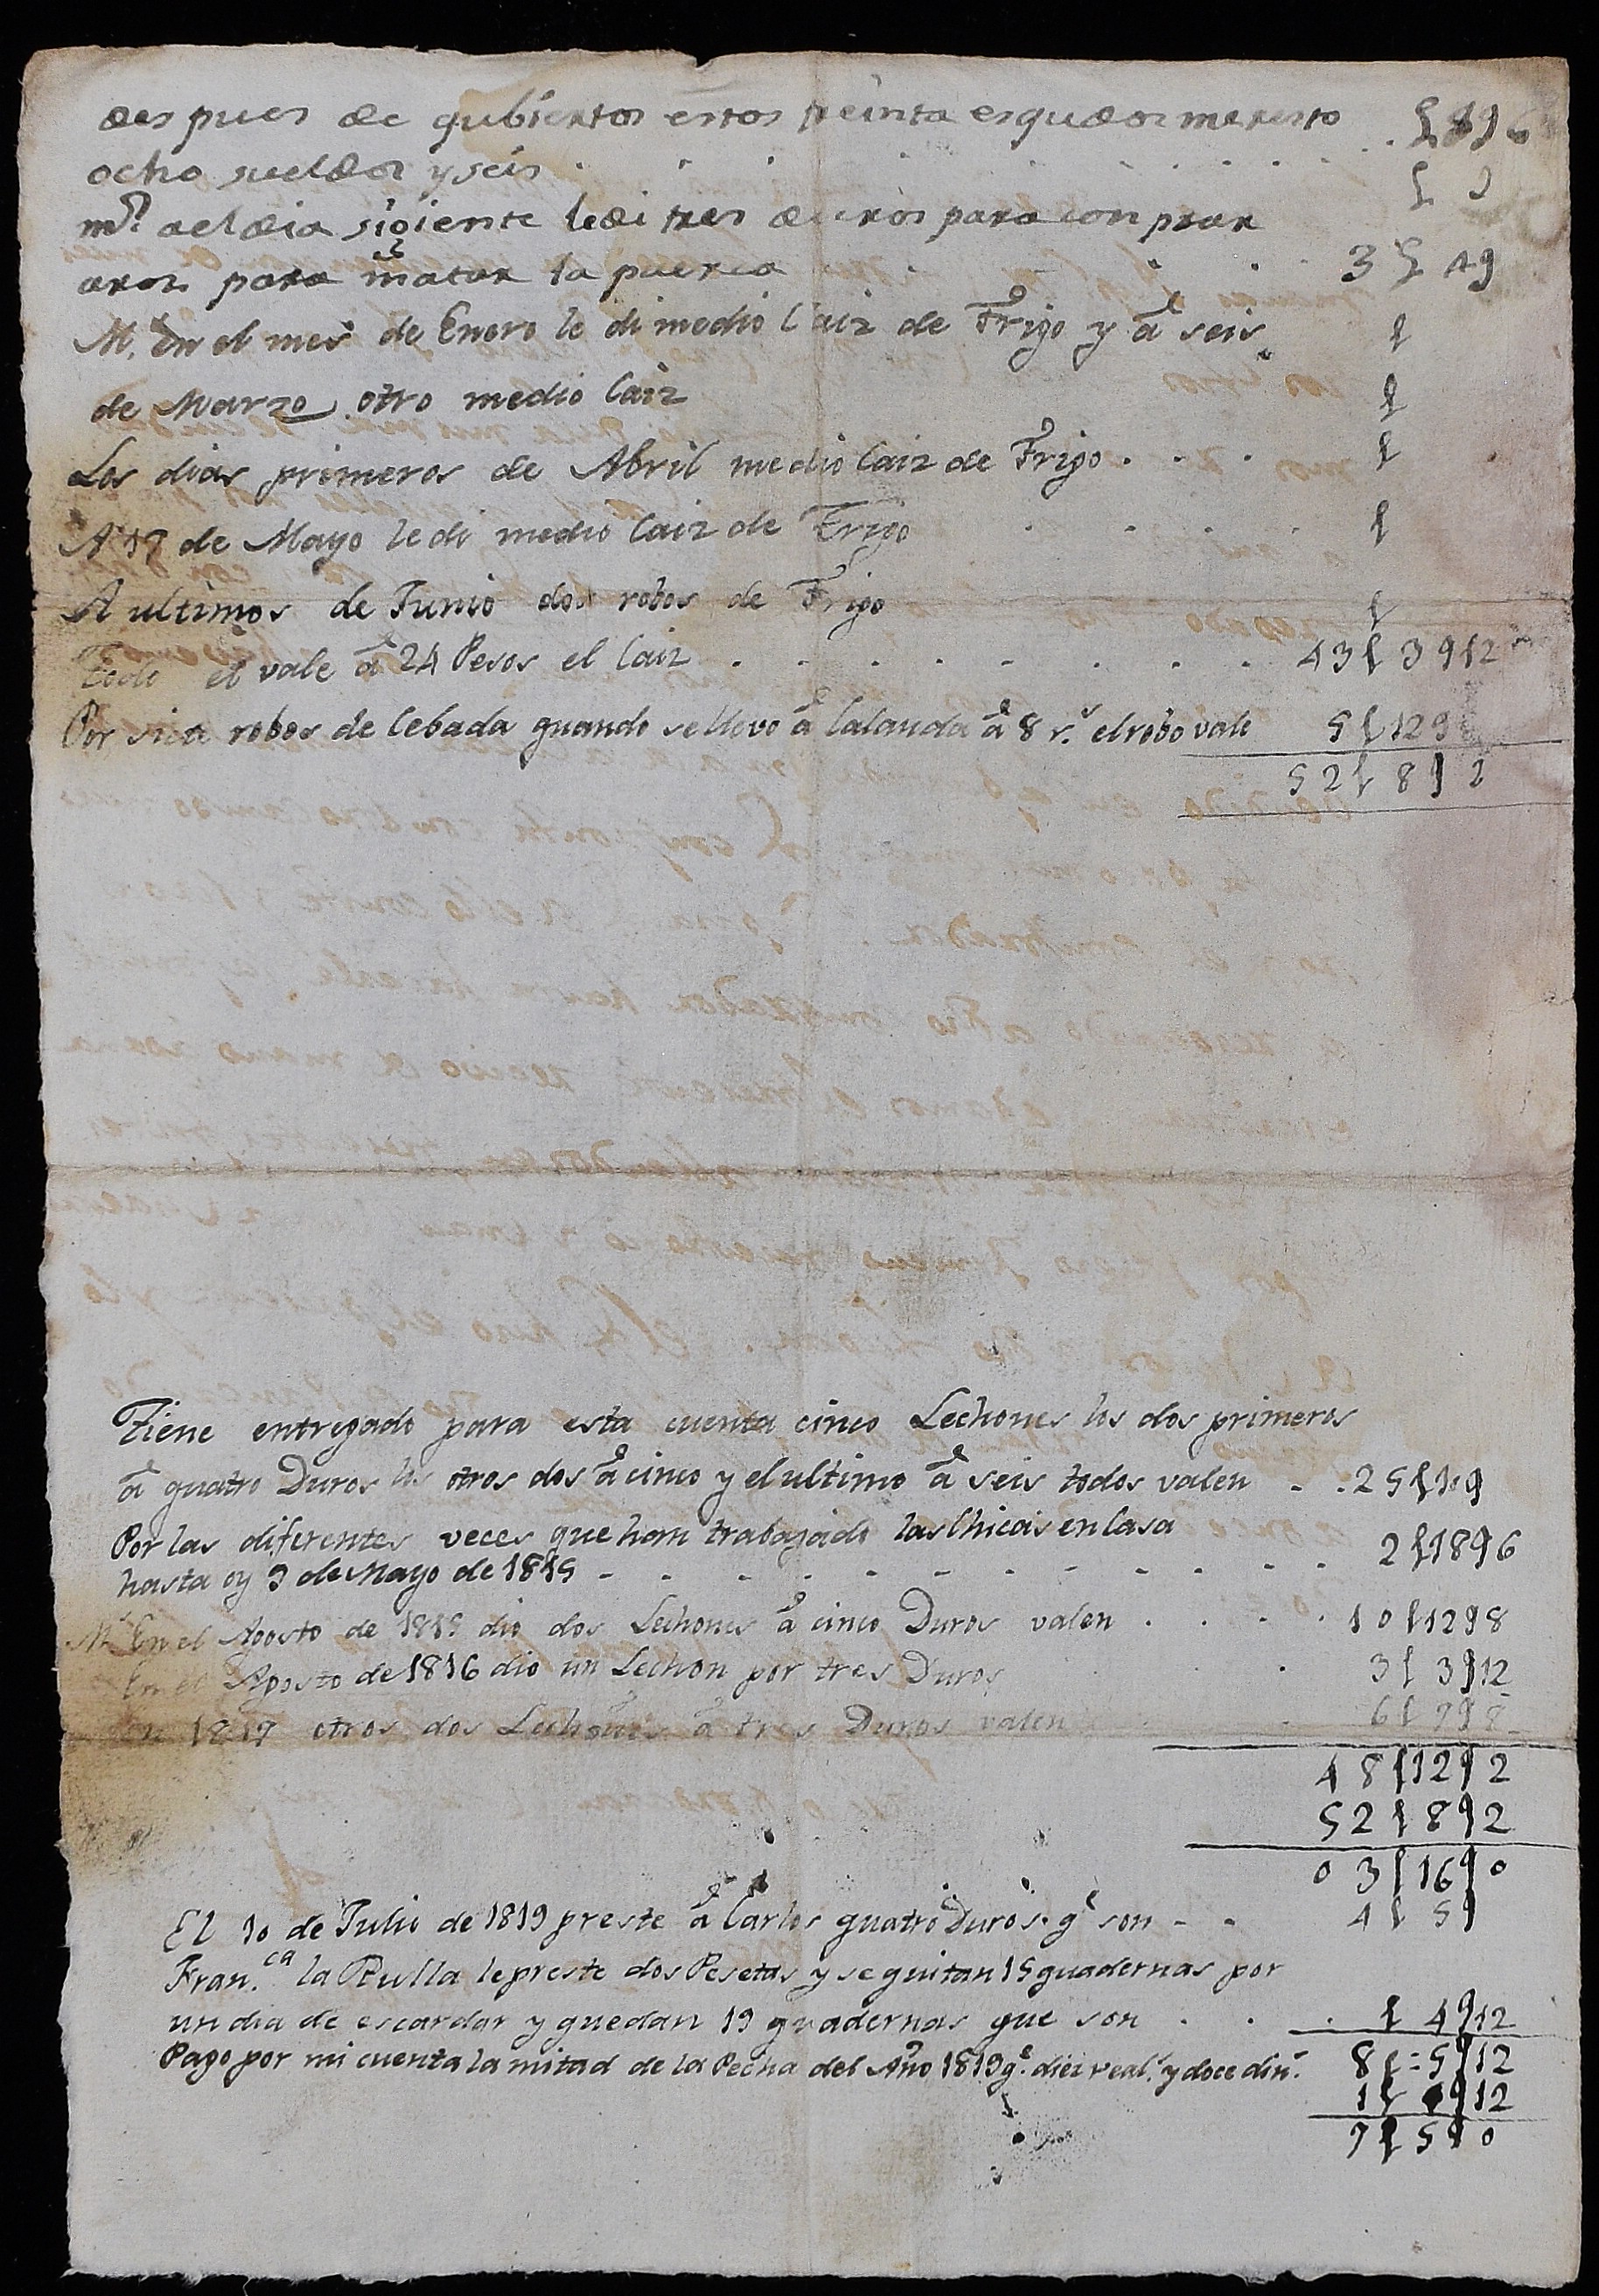 despues de qubiertos estos treinta esqudos me resto
ocho sueldos y seis . . . . . . . . . . . ʃ 8 9 6
ms. al dia sigiente le di tres duros para conprar
aros para matar la puerca . . . 3 ʃ 4 9
M. En el mes de Enero le di medio Caiz de Trigo y á seis
de Marzo otro medio Caiz
Los dias primeros de Abril medio Caiz de Trigo . . .
A 17 de Mayo le di medio Caiz de Trigo . . . .
A ultimos de Junio dos robos de Trigo
Todo el vale á 24 Pesos el Caiz . . . . . . . . . 43 ʃ 3 9 12
Por siete robos de Cebada quando se llevo á Calanda á 8 rs. el robo vale 5 ʃ 12 9
52 ʃ 8 9 2
Tiene entregado para esta cuenta cinco Lechones los dos primeros
á quatro Duros los otros dos á cinco y el ultimo á seis todos valen . . 25 ʃ 10 9
Por las diferentes veces que han trabajado las Chicas en Casa
hasta oy 3 de Mayo de 1815 - - - - - - - - - - 2 ʃ 18 9 6
Ms. En el Agosto de 1815 dio dos Lechones á cinco Duros valen . . . . 10 ʃ 12 9 8
En el Agosto de 1816 dio un Lechon por tres Duros . . 3 ʃ 3 9 12
En 1817 otros dos Lechones á tres Duros valen . . 6 ʃ 7 9 8
48 ʃ 12 9 2
52 ʃ 8 9 2
0 3 ʃ 16 9 0
El 10 de Julio de 1819 preste á Carlos quatro Duros. qe. son - - 4 ʃ 5 9
Fran.ca la Rulla le preste dos Pesetas y se quitan 15 quadernas por
un dia de escardar y quedan 19 quadernas que son . . . ʃ 4 9 12
8 ʃ = 5 9 12
Pago por mi cuenta la mitad de la Pecha del Año 1819 qe. diez real.s y doce din.s 1 ʃ 0 9 12
7 ʃ 5 9 0